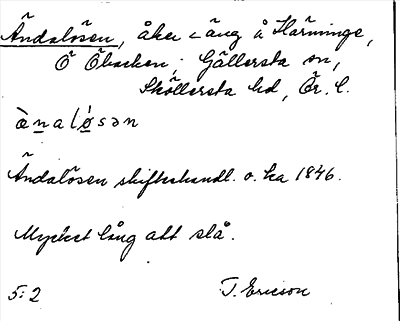 Ändalösen, åker o äng å Härminge,
Ö Öbacken. Gällersta sn,
Sköllersta hd, Ör. l.
ànalǿsən
Ändalösen skifteshandl. o. ka 1846.
Mycket lång att slå.
5:2 T. Ericson